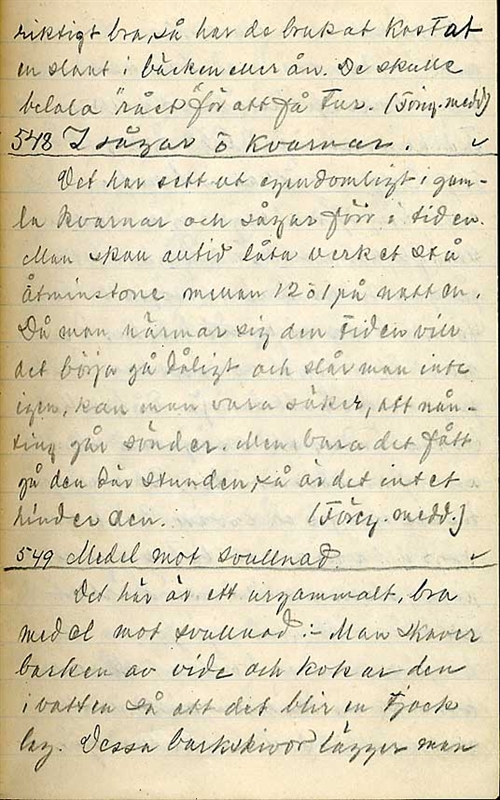 riktigt bra, så har de brukat kastat
en slant i bäcken eller ån. De skulle
betala "rået" för att få tur. (Föreg. medd)
548 I sågar o kvarnar. ✓
Det har sett ut egendomligt i gam-
la kvarnar och sågar förr i tiden.
Man skall alltid låta verket stå
åtminstone mellan 12 o 1 på natten.
Då man närmar sig den tiden vill
det börja gå dåligt och slår man inte
igen, kan man vara säker, att nån-
ting går sönder. Men bara det fått
gå den där stunden, så är det intet
hinder den. (Föreg. medd.)
549 Medel mot svullnad. ✓
Det här är ett urgammalt, bra
medel mot svullnad :- Man skaver
barken av vide och kokar den
i vatten så att det blir en tjock
lag. Dessa barkskivor lägger man